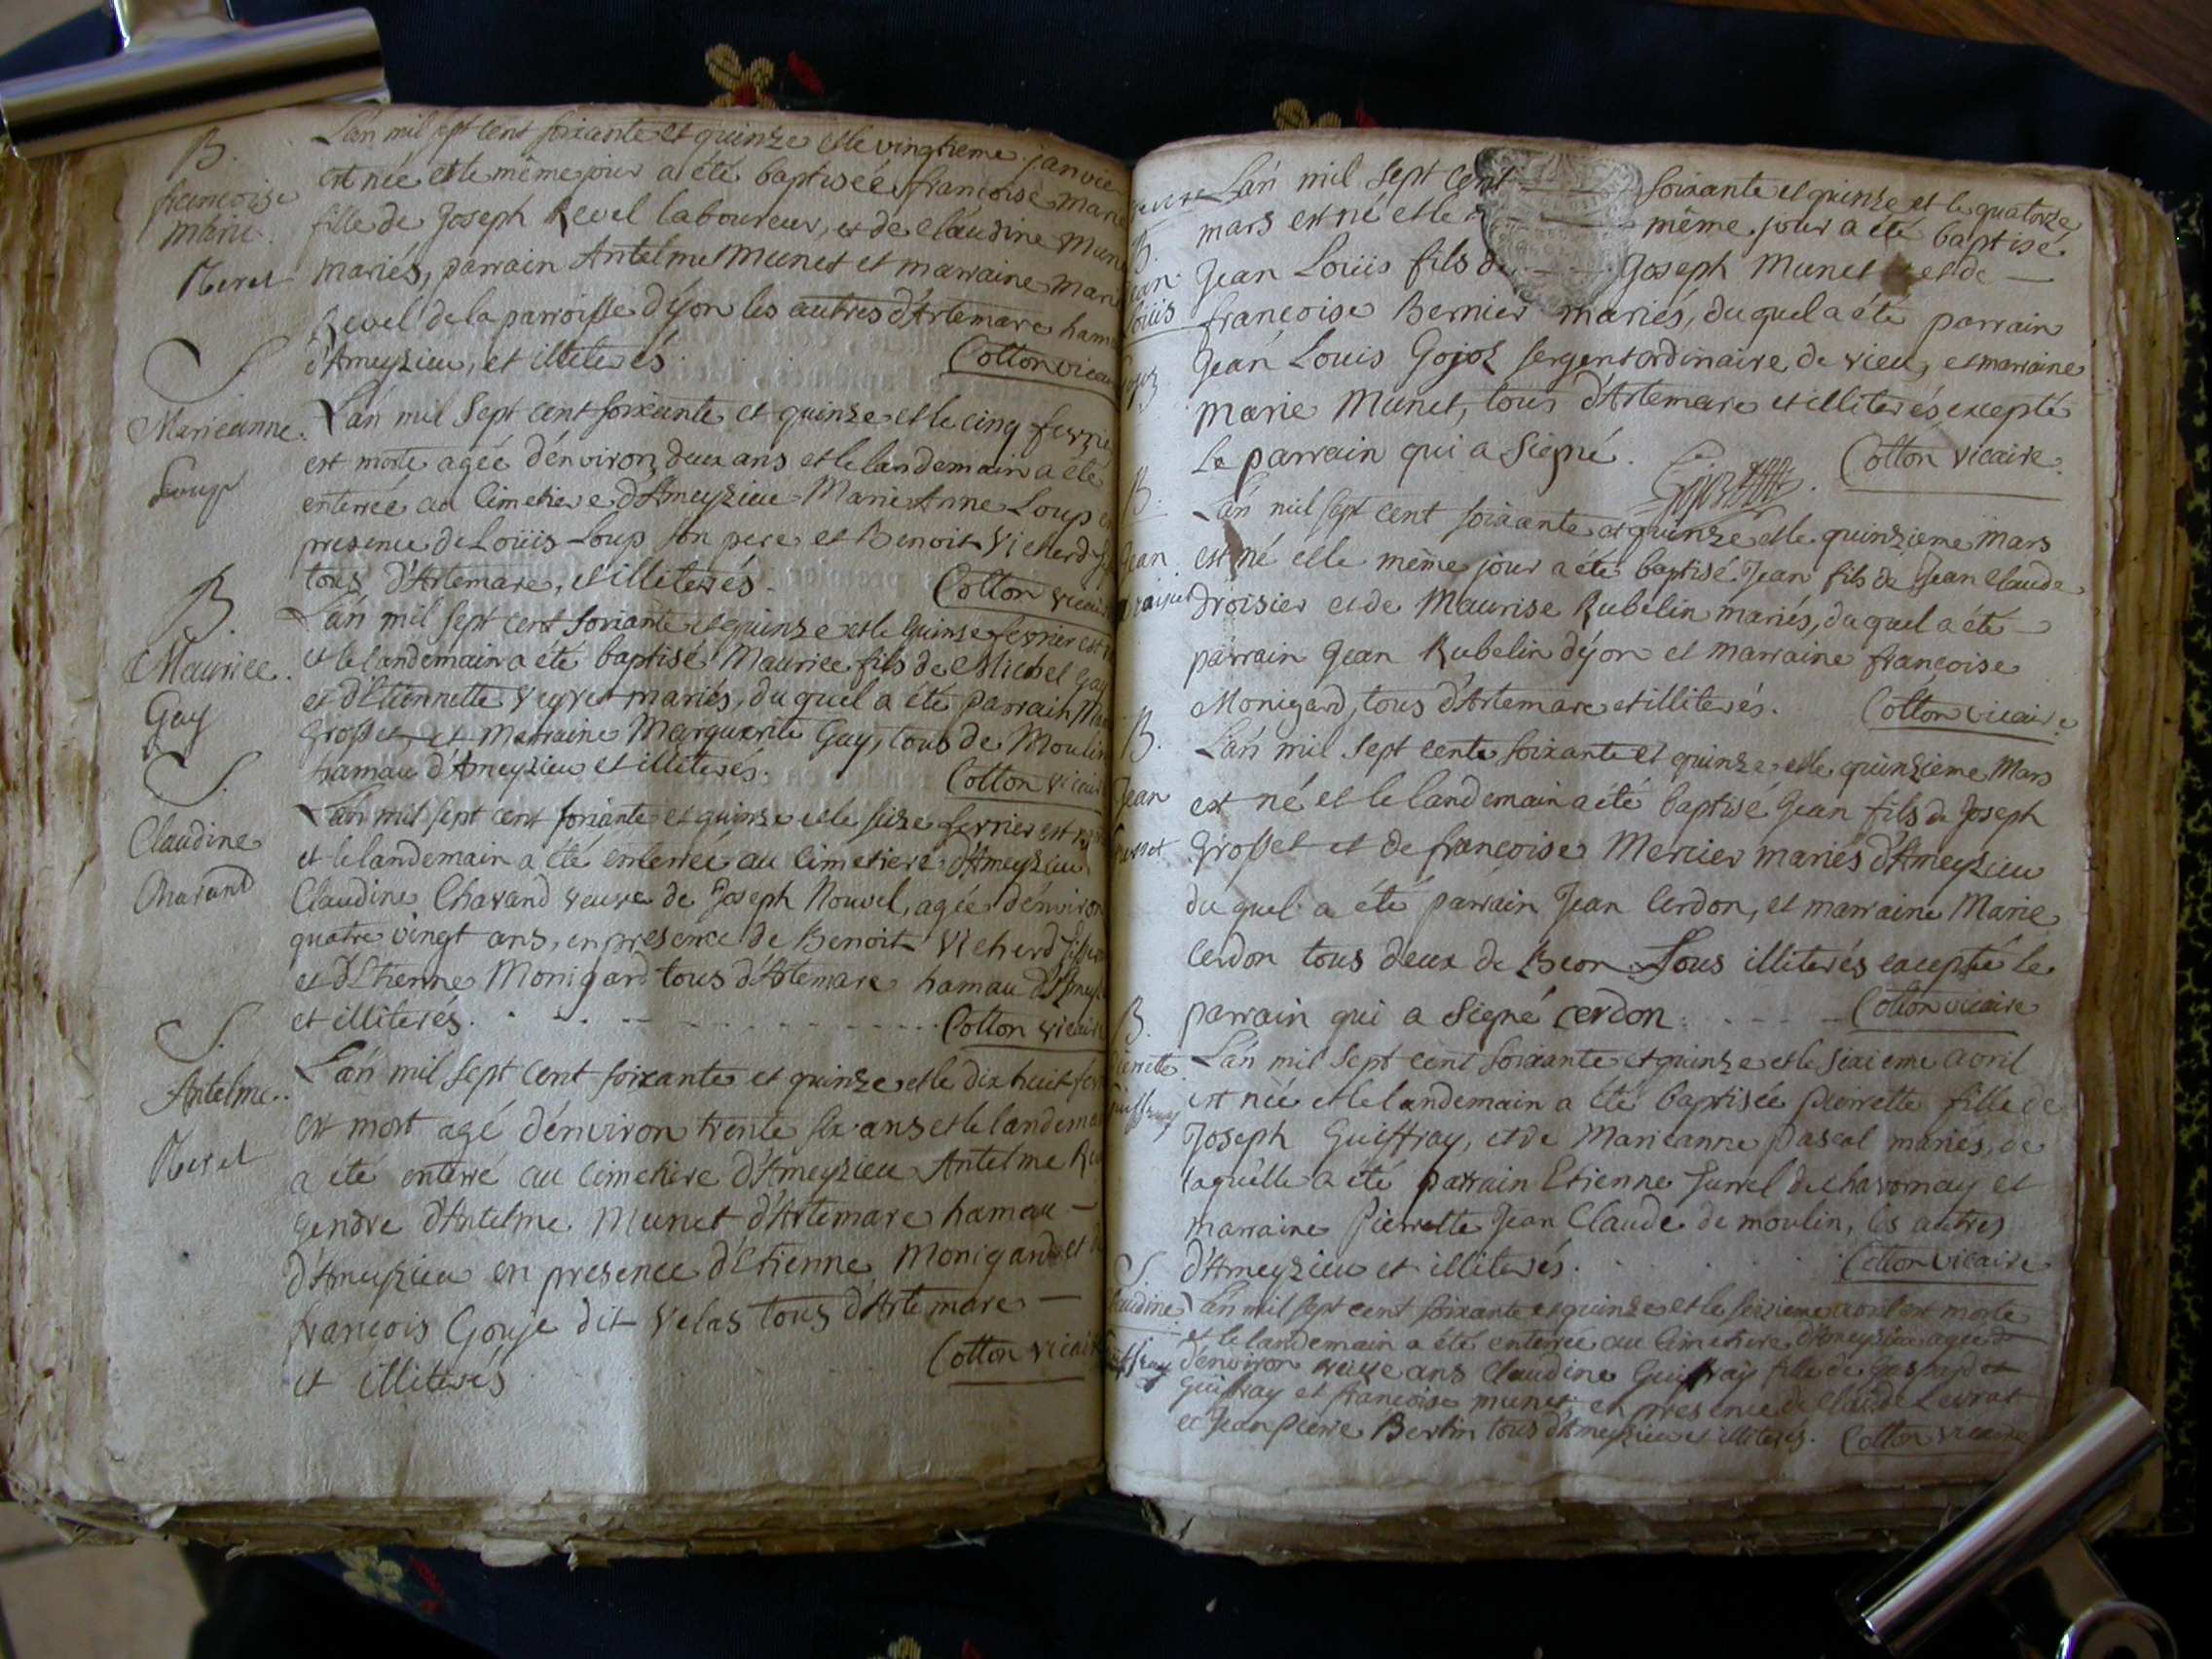 B.
francoise
marie.
Revel
L'an mil sept cent soixante et quinze et le vingtieme janvie
est née et le même jour a été baptisée francoise marie
fille de Joseph Revel laboureur, et de claudine Mune
mariés, parrain Antelme Munet et marraine Mari
Revel de la parroisse d'yon les autres d'Artemare ham
d'Ameyzieu, et illiterés. Cotton vicai
S.
Marieanne.
Loup
L'an mil Sept cent soixante et quinze et le cinq fevrie
est morte agée d'énviron deux ans et le landemain a été
enterrée au Cimetiere d'Ameyzieu Marie Anne Loup en
presence de Loüis Loup son pere et Benoit Vicherd
tous d'Artemare, et illiterés. Cotton vicai
B.
Maurice.
Gay
L'an mil sept cent soixante et quinze et le quinse fevrier est
et le landemain a été baptisé Maurice fils de Michel Gay
et d'Etiennette veyret mariés, du quel a été parrain
Grosset, et marraine Marguerite Gay, tous de Moulin
hamau d'Ameyzieu et illiterés. Cotton vicair
S.
Claudine
Chavand
L'an mil sept cent soixante et quinze et le seize fevrier est
et le landemain a été enterrée au Cimetiere d'Ameyzieu
Claudine Chavand veuve de Joseph Nouvel, agée d'énviron
quatre vingt ans, en presence de Benoit Vicherd
et d'Etienne Monigard tous d'Artemare hamau d'Ameyz
et illiterés. Cotton vicaire
S.
Antelme.
Revel
L'an mil sept cent soixante et quinze et le dix huit fev
est mort agé d'énviron trente six ans et le landema
a été enterré au Cimetiere d'Ameyzieu Antelme Re
gendre d'Antelme Munet d'Artemare hamau
d'Ameyzieu en presence d'Etienne Monigard et
francois Gouje dit Velas tous d'Artemare
et illiterés Cotton vicair
B.
Jean
Loüis
L'an mil sept cent soixante et quinze et le quatorze
mars est né et le même jour a été baptisé
Jean Loüis fils de Joseph Munet et de
francoise Bernier mariés, du quel a été parrain
Jean Louis Gojoz sergent ordinaire de vieu, et marraine
marie Munet, tous d'Artemare et illiterés excepté
Le parrain qui a Signé. Gojoz Cotton vicaire.
B.
Jean
L'an mil sept cent soixante et quinze et le quinzieme Mars
est né et le même jour a été baptisé Jean fils de Jean Claude
Droisier et de Maurise Rubelin mariés, du quel a été
parrain Jean Rubelin d'yon et marraine francoise
Monigard, tous d'Artemare et illiterés. Cotton vicaire
B.
Jean
L'an mil sept cent soixante et quinze et le quinzieme Mars
est né et le landemain a été baptisé Jean fils de Joseph
Grosset et de francoise Mercier mariés d'Ameyzieu
du quel a été parrain Jean Cerdon, et marraine Marie
Cerdon tous deux de Beon. Tous illiterés excepté le
parrain qui a Signé cerdon. Cotton vicaire
B.
Pierrette
Guiffray
L'an mil sept cent soixante et quinze et le sixieme avril
est née et le landemain a été baptisée pierrette fille de
Joseph Guiffray, et de Marieanne pascal mariés, de
laquelle a été parrain Etienne Junel de chavornay et
marraine Pierrette Jean Claude de moulin, les autres
d'Ameyzieu et illiterés. Cotton vicaire
S.
Claudine
Guiffray
L'an mil sept cent soixante et quinze et le seizieme avril est morte
et le landemain a été enterrée au Cimetiere d'Ameyzieu agée
d'environ ans Claudine Guiffray fille de gaspard
Guiffray et francoise munet, en presence de Claude Levrat
et Jean pierre Bertin tous d'Ameyzieu et illiterés. Cotton vicaire